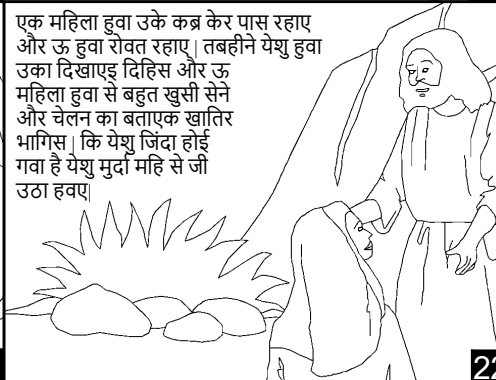 एक महिला हुवा उके कब्र केर पास रहाए
और ऊ हुवा रोवत रहाए | तबहीने येशु हुवा
उका दिखाएइ दिहिस और ऊ
महिला हुवा से बहुत खुसी सेने
और चेलन का बताएक खातिर
भागिस | कि येशु जिंदा होई
गवा है येशु मुर्दा महि से जी
उठा हवए|